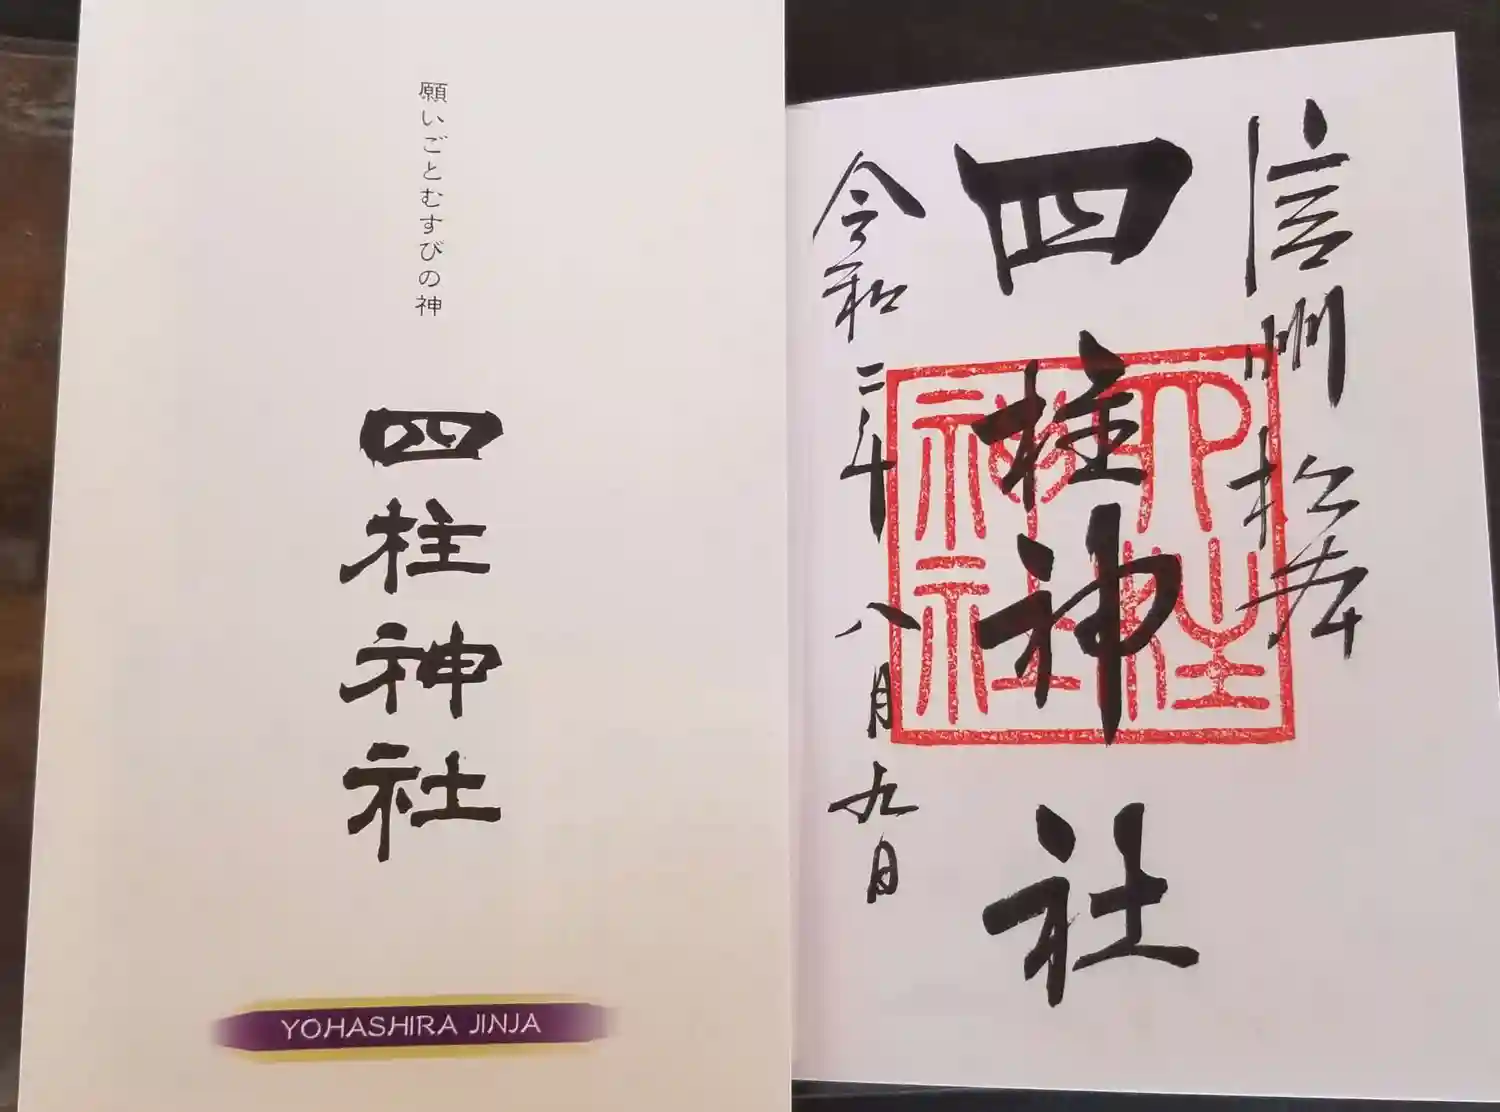 願いごとむすびの神
四柱神社
YOHASHIRA JINJA
信州松本
四柱神社
四柱神社
令和二年八月九日